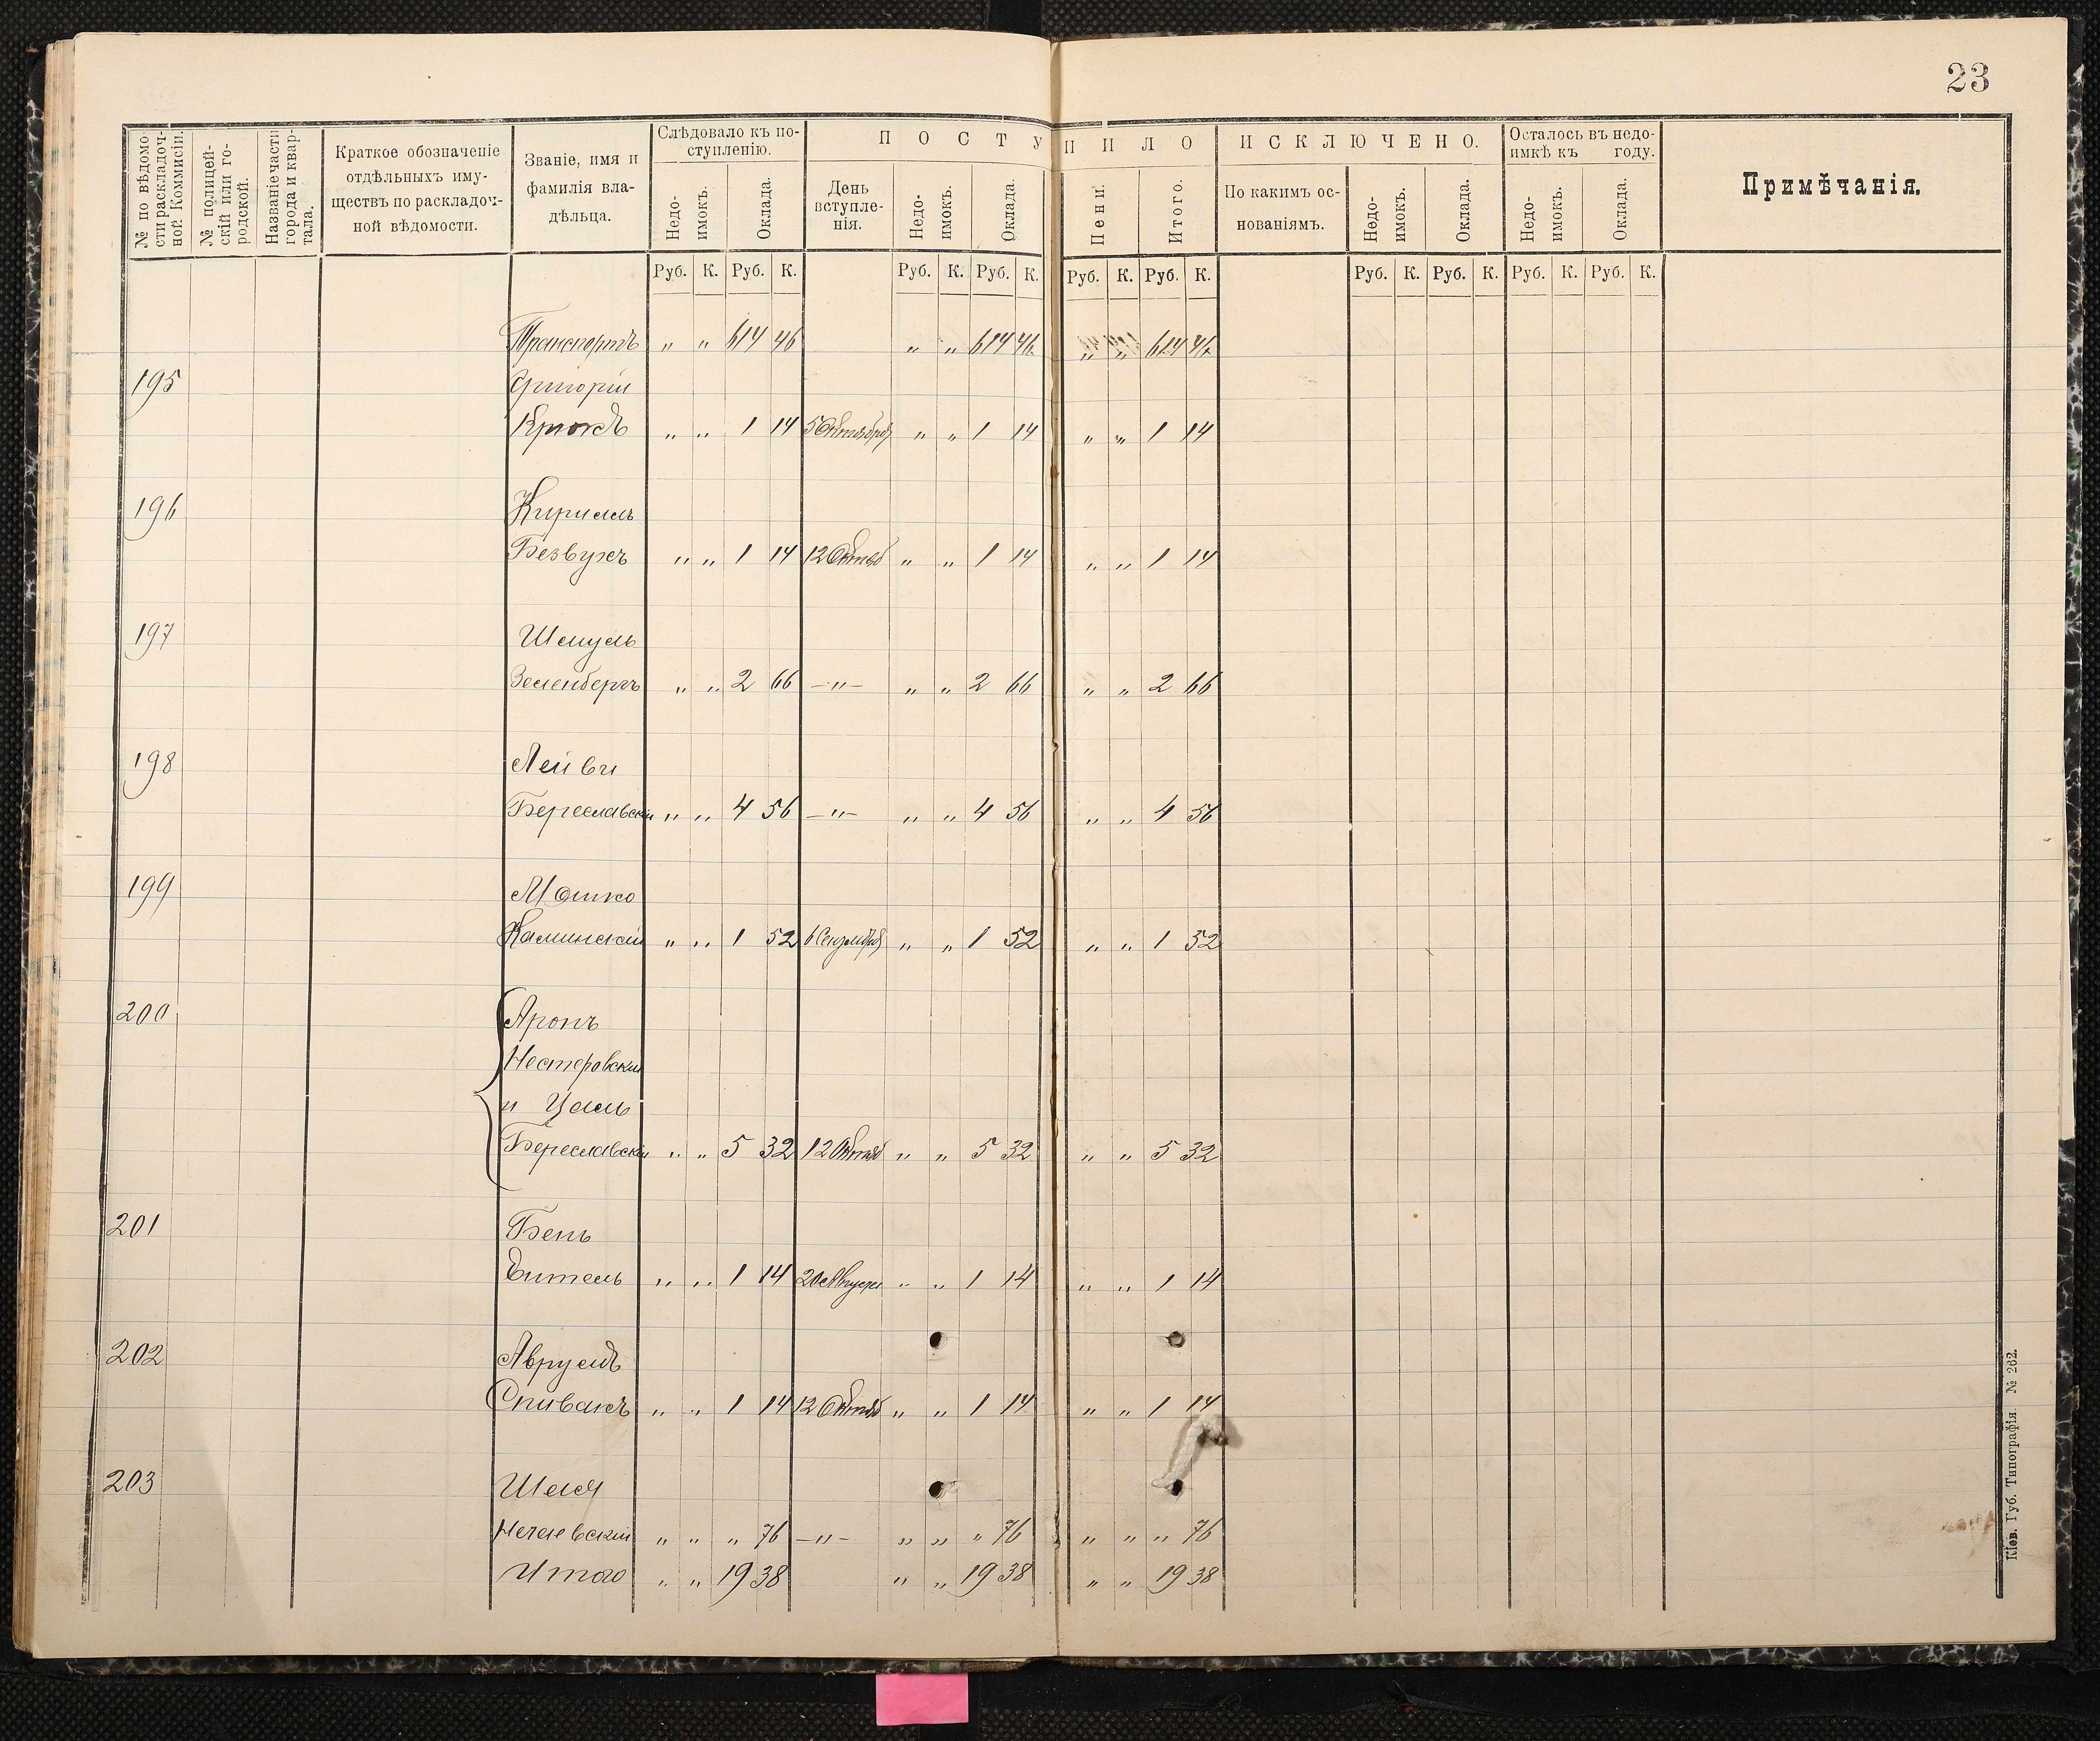 23
№ по вѣдомости раскладочной Коммисіи.
№ полицейскій или городской.
Названіе части города и квартала.
Краткое обозначеніе отдѣльныхъ имуществъ по раскладочной вѣдомости.
Званіе, имя и фамилія владѣльца.
Слѣдовало къ поступленію.
Недоимокъ. Оклада.
ПОСТУПИЛО
День вступленія. Недоимокъ. Оклада. Пени. Итого.
ИСКЛЮЧЕНО.
По какимъ основаніямъ. Недоимокъ. Оклада.
Осталось въ недоимкѣ къ году.
Недоимокъ. Оклада.
Примѣчанія.
Руб. К. Руб. К. Руб. К. Руб. К. Руб. К. Руб. К. Руб. К. Руб. К. Руб. К. Руб. К.
Транспортъ " " 614 46 " " 614 46 " " 614 46
195 Григорій
Крюкъ " " 1 14 5 Октября " " 1 14 " " 1 14
196 Кириллъ
Безвухъ " " 1 14 12 Октяб " " 1 14 " " 1 14
197 Шмуль
Зеленбергъ " " 2 66 —"— " " 2 66 " " 2 66
198 Лейви
Береславскій " " 4 56 —"— " " 4 56 " " 4 56
199 Мошко
Каминскій " " 1 52 6 Сентября " " 1 52 " " 1 52
200 Аронъ
Нестеровскій
и Цаль
Береславскій " " 5 32 12 Октяб " " 5 32 " " 5 32
201 Бень
" " 1 14 20 Августа " " 1 14 " " 1 14
202 Аврумъ
Спивакъ " " 1 14 12 Октяб " " 1 14 " " 1 14
203 Шая
Нечаевскій " " " 76 —"— " " " 76 " " " 76
Итого " " 19 38 " " 19 38 " " 19 38
Кіев. Губ. Типографія. № 262.